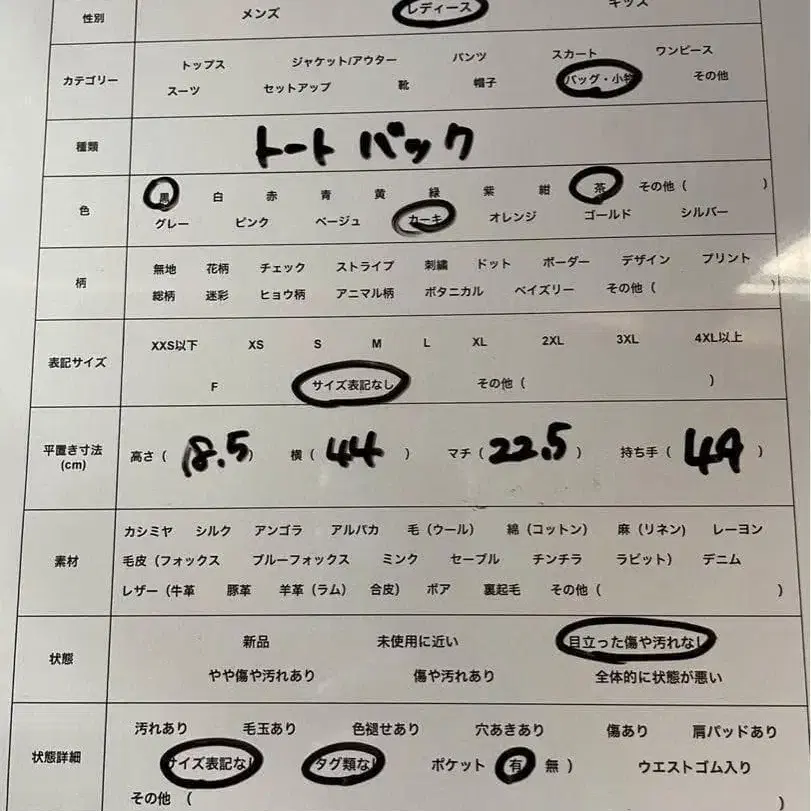 性別 メンズ レディース キッズ
カテゴリー トップス ジャケット/アウター パンツ スカート ワンピース
スーツ セットアップ 靴 帽子 バッグ・小物 その他
種類 トートバック
色 黒 白 赤 青 黄 緑 紫 紺 茶 その他 ( )
グレー ピンク ベージュ カーキ オレンジ ゴールド シルバー
柄 無地 花柄 チェック ストライプ 刺繍 ドット ボーダー デザイン プリント
総柄 迷彩 ヒョウ柄 アニマル柄 ボタニカル ペイズリー その他 ( )
表記サイズ XXS以下 XS S M L XL 2XL 3XL 4XL以上
F サイズ表記なし その他 ( )
平置き寸法 (cm) 高さ ( 18.5 ) 横 ( 44 ) マチ ( 22.5 ) 持ち手 ( 49 )
素材 カシミヤ シルク アンゴラ アルパカ 毛 (ウール) 綿 (コットン) 麻 (リネン) レーヨン
毛皮 (フォックス ブルーフォックス ミンク セーブル チンチラ ラビット) デニム
レザー (牛革 豚革 羊革 (ラム) 合皮) ボア 裏起毛 その他 ( )
状態 新品 未使用に近い 目立った傷や汚れなし
やや傷や汚れあり 傷や汚れあり 全体的に状態が悪い
状態詳細 汚れあり 毛玉あり 色褪せあり 穴あきあり 傷あり 肩パッドあり
サイズ表記なし タグ類なし ポケット ( 有 無 ) ウエストゴム入り
その他 ( )